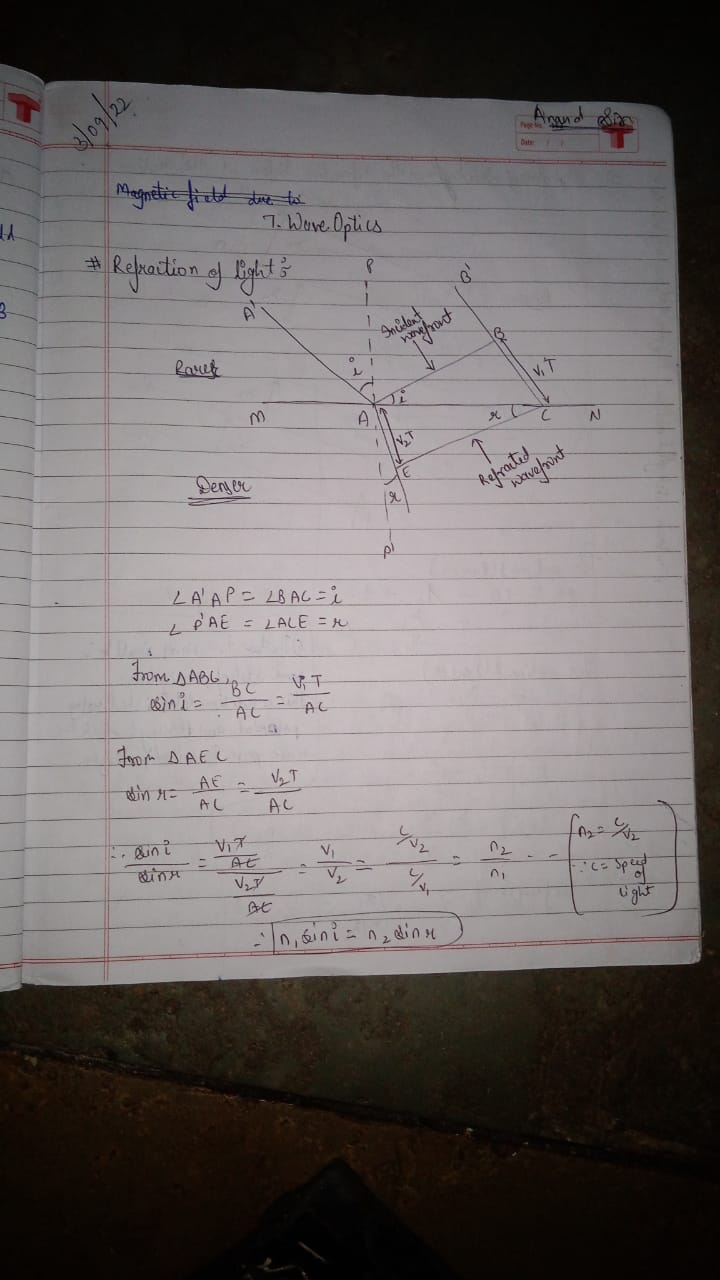 3/09/22
Anand
Page No.
Date: / /
T
T
Magnetic field due to
7. Wave Optics
# Refraction of light :
P
B'
A'
Incident wavefront
B
i
Rarer
V₁T
i
M
A
r
C
N
V₂T
E
Refracted wavefront
Denser
r
P'
∠A'AP = ∠BAC = i
∠P'AE = ∠ACE = r
From ΔABC,
sin i = BC/AC = V₁T/AC
From ΔAEC
sin r = AE/AC = V₂T/AC
∴ sin i/sin r = (V₁T/AC)/(V₂T/AC) = V₁/V₂ = (c/V₂)/(c/V₁) = n₂/n₁ - - [n₂ = c/V₂
∵ c = Speed
of
light]
∴ n₁ sin i = n₂ sin r